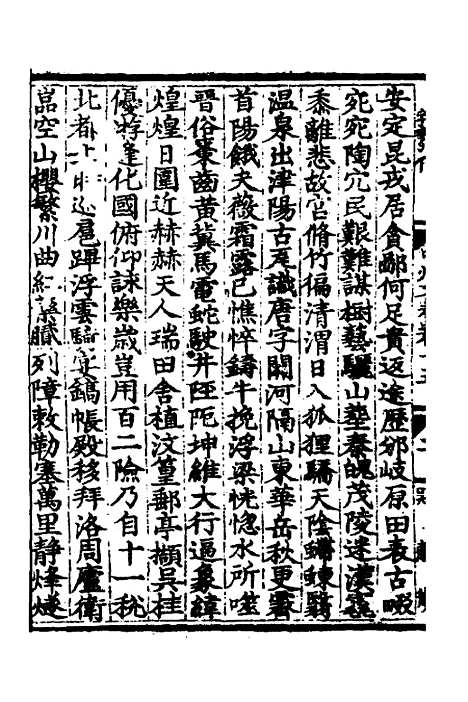 安定昆戎居貪鄙何足責返途歷邠岐原田表古畷
宛宛陶穴民艱難謀樹藝驪山墊秦魄茂陵迷漢竁
黍離悲故宮脩竹徧清渭日入狐狸驕天陰
溫泉出津陽古瓦識唐字關河隔山東華岳秋更霽
首陽餓夫薇霜露已憔悴鑄牛挽浮梁恍惚水所噬
晉俗棗齒黃冀馬電蛇駛井陘阨坤維大行逼象緯
煌煌日圍近赫赫天人瑞田舍植汶篁郵亭擷吳桂
優游逢化國俯仰誄樂歲豈用百二險乃自十一稅
北者扈蹕浮雲騎鎬帳殿移拜洛周廬衛
嵓空山櫻繁川曲紅藥膩列障敕勒塞萬里靜烽燧